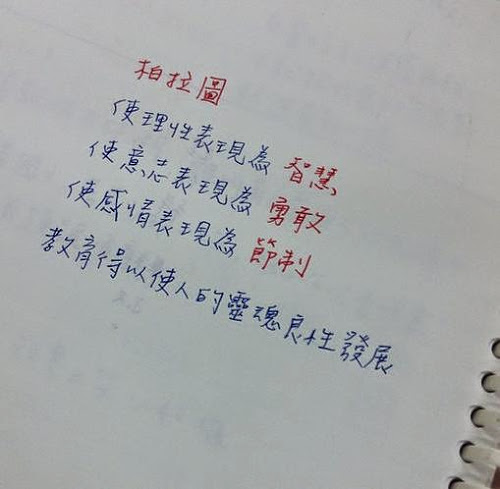 柏拉圖
使理性表現為 智慧
使意志表現為 勇敢
使感情表現為 節制
教育得以使人的靈魂良性發展